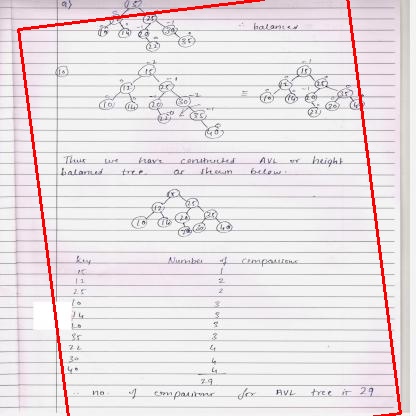 a)
15
25
10 14 20 30
22 35
∴ balanced
(10)
15
12 25
10 14 20 30
22 35
40
=
15
12 25
10 14 20 35
22 40
Thus we have constructed AVL or height
balanced tree as shown below.
15
12 25
10 14 20 35
22 30 40
Key Number of comparisons
15 1
12 2
25 2
10 3
14 3
20 3
35 3
22 4
30 4
40 4
29
∴ no. of comparisons for AVL tree is 29